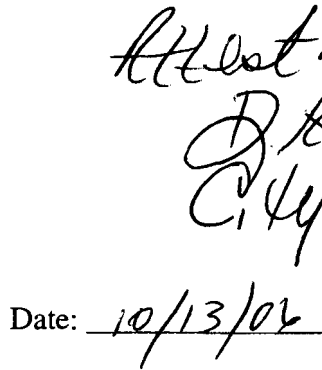 Attest:
City
Date: 10/13/06